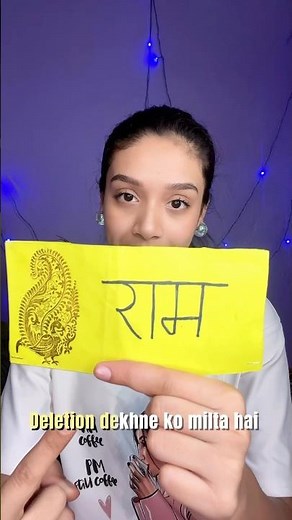 राम
Deletion dekhne ko milta hai
coffee
PM
still coffee